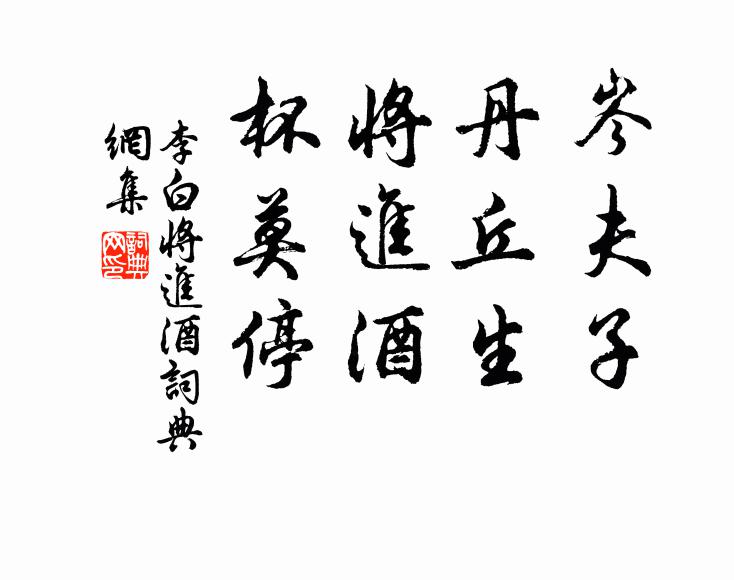 岑夫子
丹丘生
將進酒
杯莫停
李白將進酒詞典
網集
詞典网印